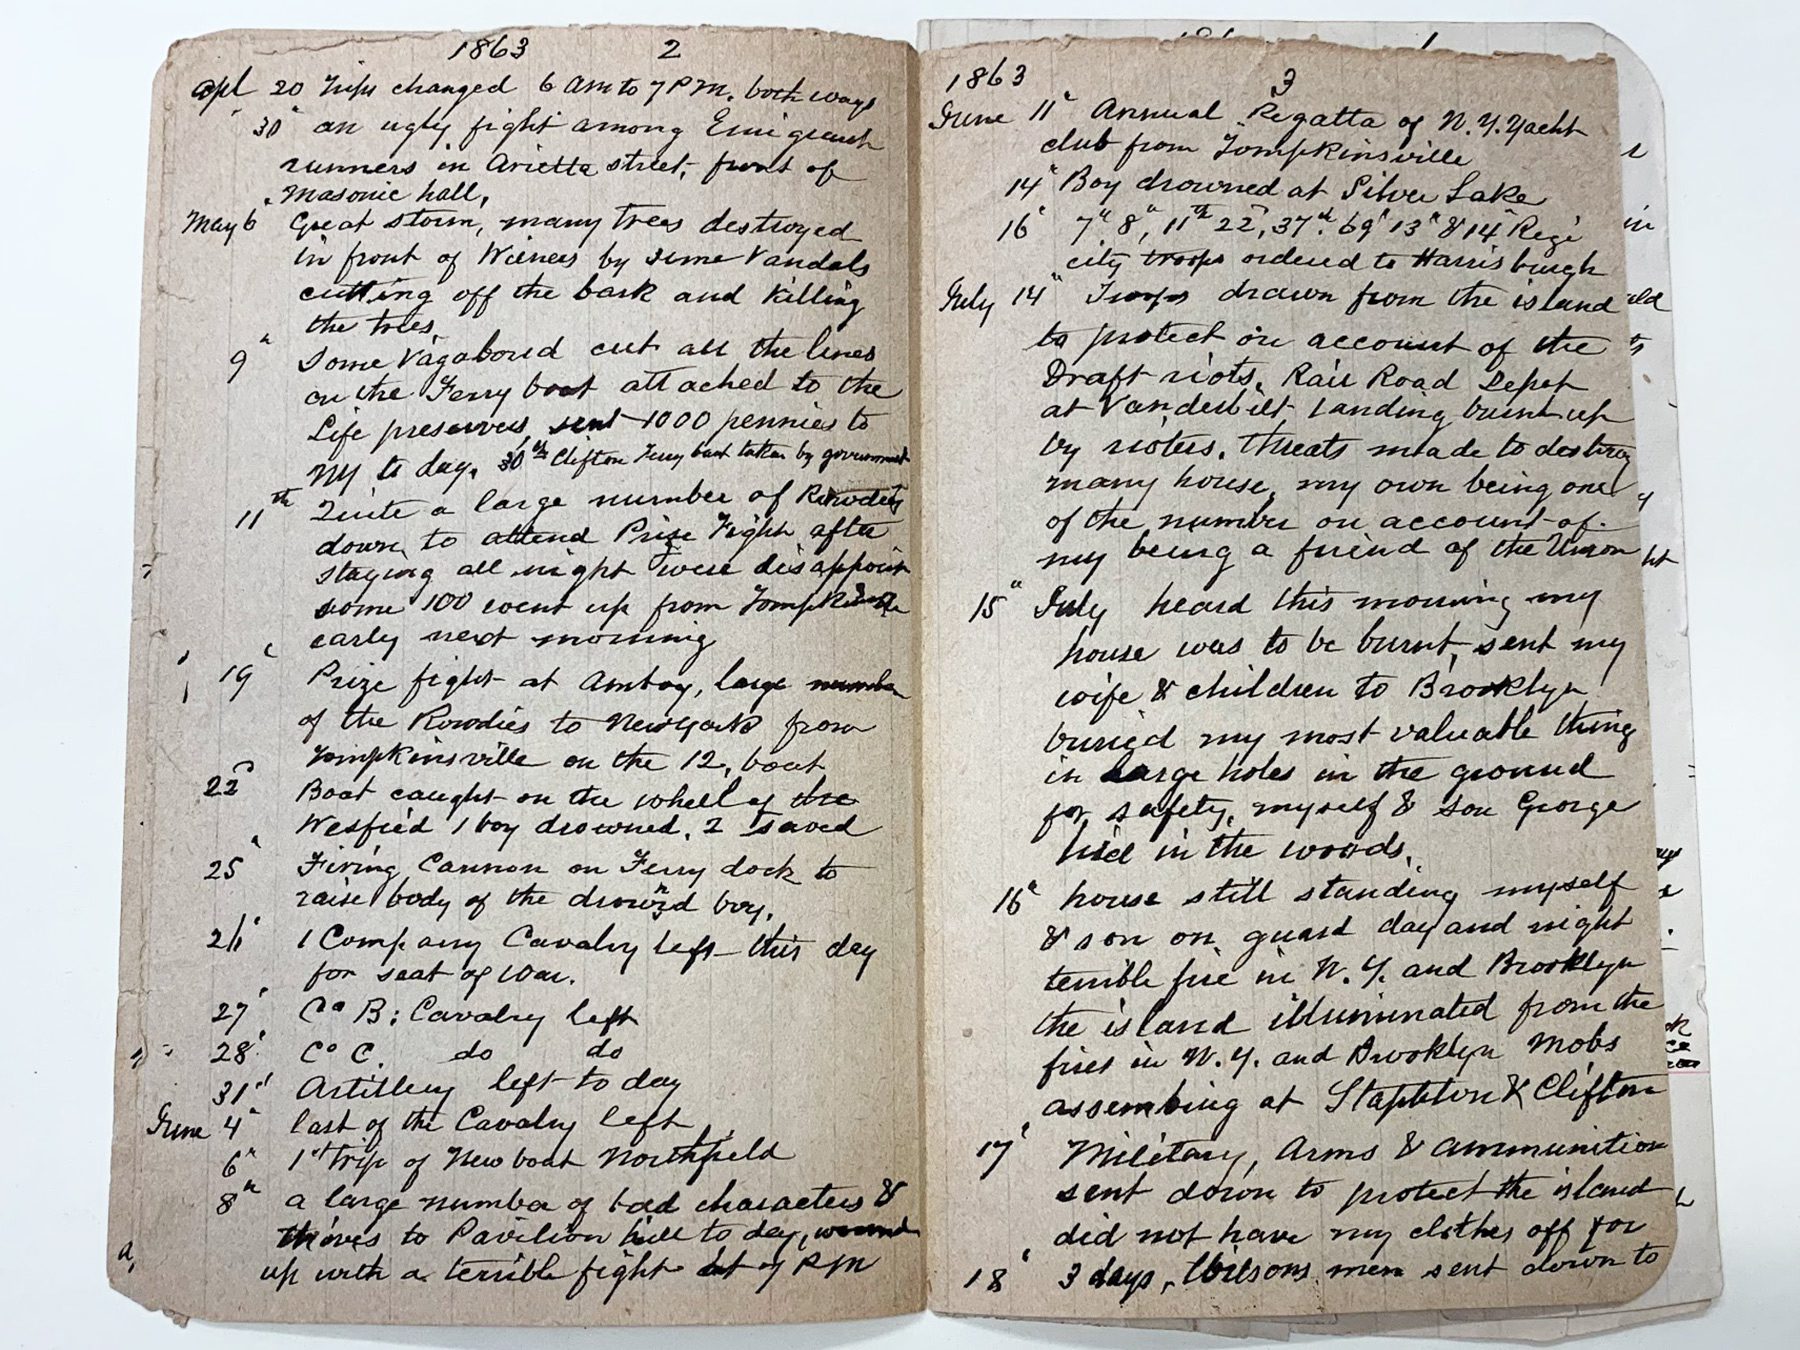 1863 2
apl 20 Trips changed 6 Am to 7 PM. both ways
30" an ugly fight among Emigrant
runners in Arietta street, front of
Masonic hall,
May 6" Great storm, many trees destroyed
in front of Wieners by some Vandals
cutting off the bark and killing
the trees
9" Some Vagabond cut all the lines
on the Ferry boat attached to the
Life preservers, sent 1000 pennies to
NY to day. 30th Clifton Ferry boat taken by government
11th Quite a large number of Rowdies
down to attend Prize Fight after
staying all night were disappoint
some 100 went up from Tompkinsville
early next morning
19" Prize fight at Amboy, large number
of the Rowdies to New York from
Tompkinsville on the 12, boat
22" Boat caught on the wheel of the
Wesfied 1 boy drowned. 2 saved
25" Firing Cannon on Ferry dock to
raise body of the drownd boy.
26" 1 Company Cavalry left this day
for seat of war.
27" Co B: Cavalry left
28" Co C. do do
31st Artillery left to day
June 4" last of the Cavalry left
6" 1st Trip of New boat Northfield
8" a large number of bad characters &
thieves to Pavilion hill to day, wound
up with a terrible fight at 7 PM
1863
3
June 11" Annual Regatta of N.Y. Yacht
club from Tompkinsville
14" Boy drowned at Silver Lake
16" 7" 8", 11th 22", 37th. 69" 13" & 14" Regi
city troops ordered to Harrisburgh
July 14" Troops drawn from the island
to protect on account of the
Draft riots, Rail Road Depot
at Vanderbilt Landing burnt up
by rioters. threats made to destroy
many house, my own being one
of the number on account of
my being a friend of the Union
15" July heard this morning my
house was to be burnt, sent my
wife & children to Brooklyn
buried my most valuable thing
in large holes in the ground
for safety, myself & son George
hied in the woods.
16" house still standing myself
& son on guard day and night
terrible fire in N.Y. and Brooklyn
the island illuminated from the
fires in N.Y. and Brooklyn Mobs
assembing at Stapleton & Clifton
17" Military, Arms & ammunition
sent down to protect the island
did not have my clothes off for
18" 3 days, Wilsons men sent down to